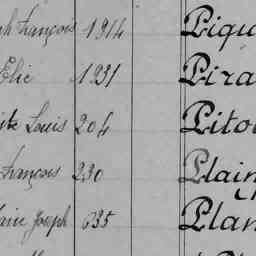 François 1914 Piqu
Elie 1231 Pira
Louis 204 Pito
François 230 Plain
Joseph 635 Plan